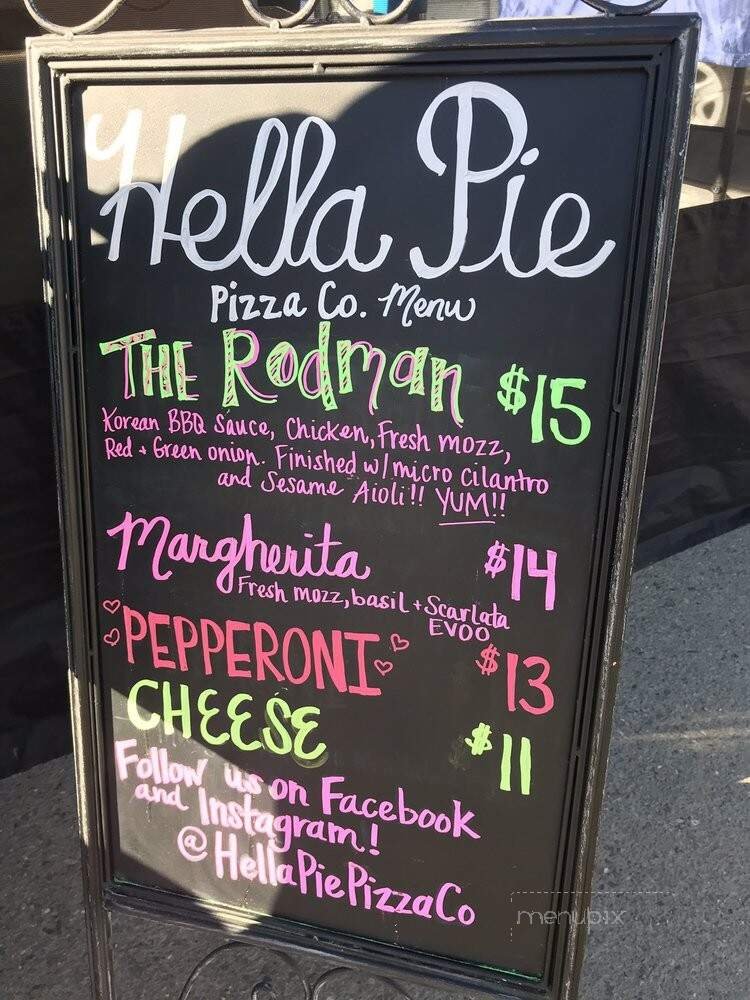 Hella Pie
Pizza Co. Menu
THE Rodman $15
Korean BBQ Sauce, Chicken, Fresh mozz,
Red + Green onion. Finished w/ micro cilantro
and Sesame Aioli!! YUM!!
Margherita $14
Fresh mozz, basil + Scarlata
EVOO
PEPPERONI $13
CHEESE $11
Follow us on Facebook
and Instagram!
@HellaPiePizzaCo
menupix